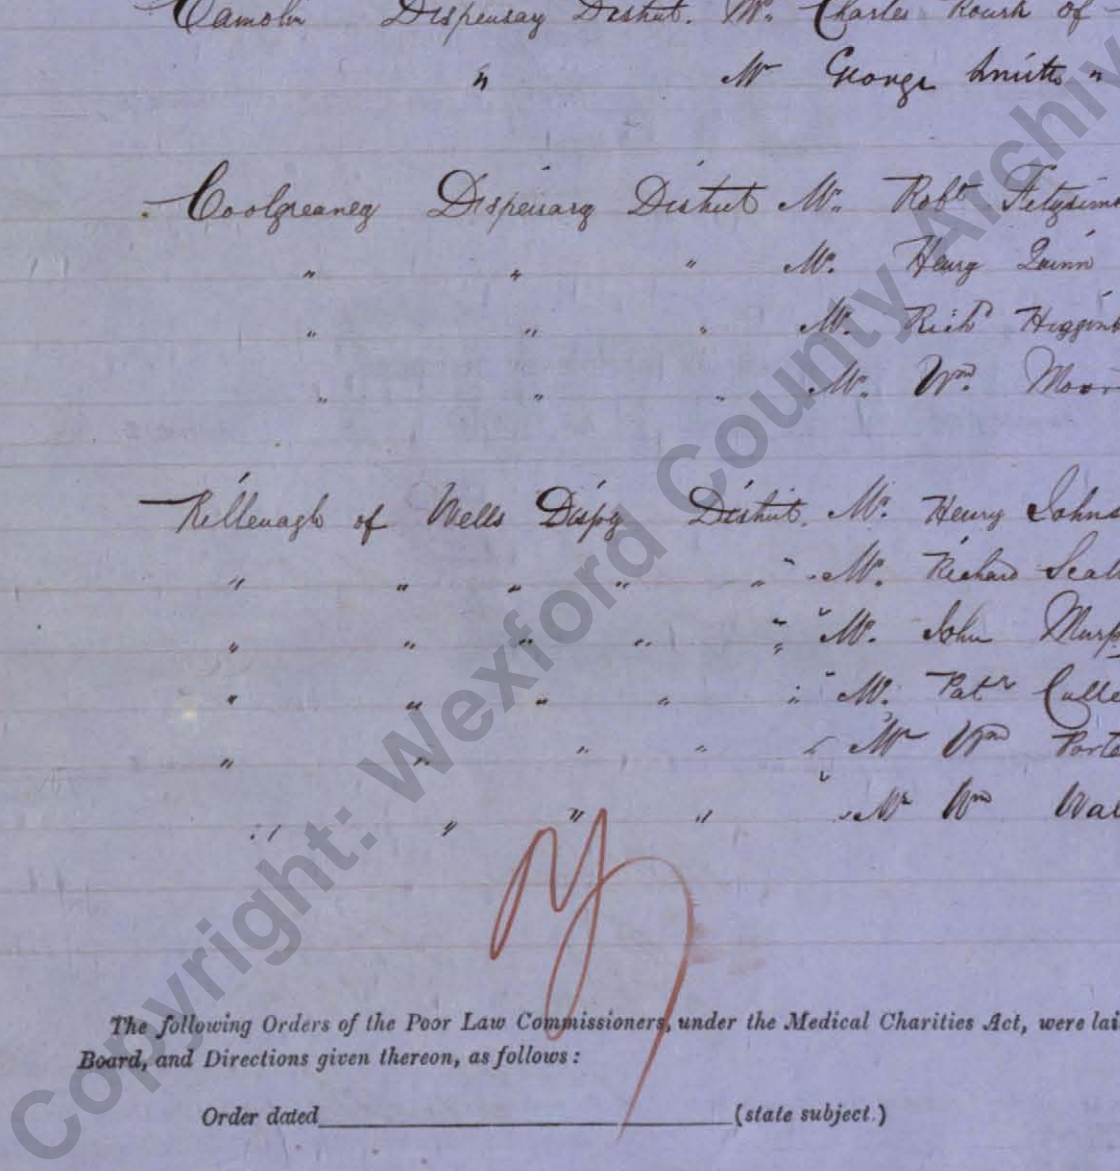 Camolin Dispensay District. Mr. Charles Rourk of
" Mr George Smith "
Coolgreaney Dispensary District Mr. Robt Fitzsim
" " " Mr. Henry Quinn
" " " Mr. Richd Higgin
" " " Mr. Wm. Moor
Killenagh of Wells Dispy District. Mr. Henry Johns
" " " " " Mr. Richard Scal
" " " " " Mr. John Murp
" " " " " Mr. Patk Culle
" " " " " Mr Wm Porte
" " " " Mr Wm Wal
The following Orders of the Poor Law Commissioners, under the Medical Charities Act, were lai
Board, and Directions given thereon, as follows:
Order dated (state subject.)
Copyright: Wexford County Archiv